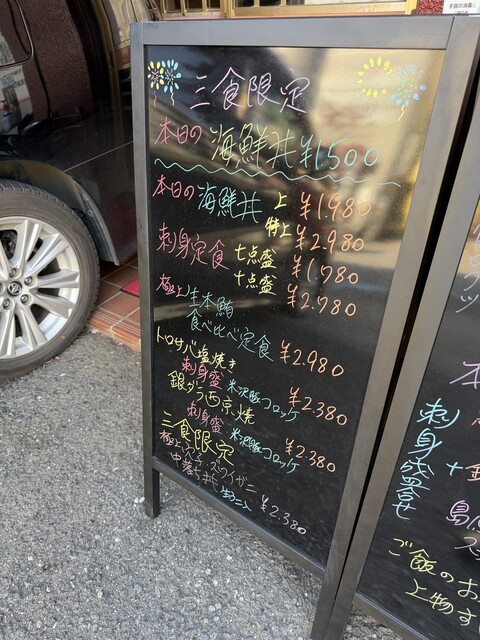 三食限定
本日の 海鮮丼 ¥1500
本日の 海鮮丼 上 ¥1.980
特上 ¥2.980
刺身定食 七点盛 ¥1.780
十点盛 ¥2.780
極上生本鮪
食べ比べ定食 ¥2.980
トロサバ塩焼き
刺身盛 米沢豚コロッケ ¥2.380
銀ダラ西京焼
刺身盛 米沢豚コロッケ ¥2.380
三食限定
極上穴子 ズワイガニ
中落ち丼 ¥2.380
本
刺身盛合せ
ご飯のお
上物す